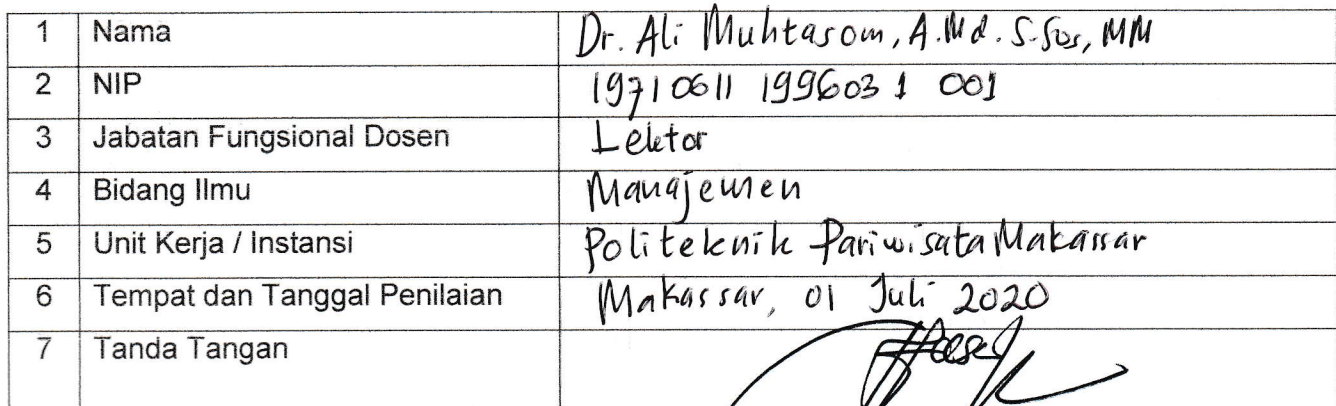 1 Nama Dr. Ali Muhtasom, A.Md. S.Sos, MM
2 NIP 19710611 199603 1 001
3 Jabatan Fungsional Dosen Lektor
4 Bidang Ilmu Manajemen
5 Unit Kerja / Instansi Politeknik Pariwisata Makassar
6 Tempat dan Tanggal Penilaian Makassar, 01 Juli 2020
7 Tanda Tangan